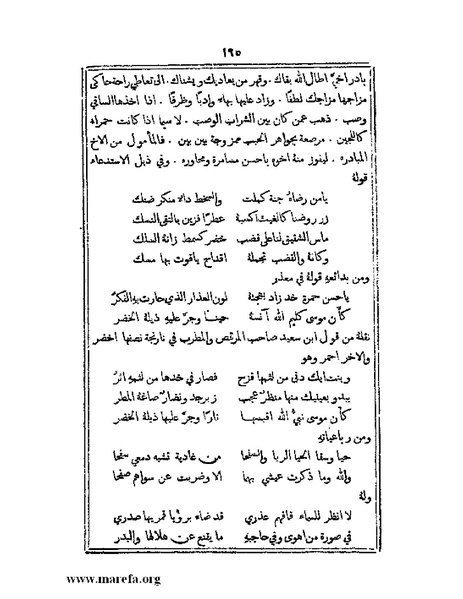 ١٩٥
بادر اخيَّ اطال الله بقاك . وقهر من يعاديك ويشناك . الى تعاطي راحة حاكى
مزاجها مزاجك لطفًا . وزاد عليها بهاءً وادبًا وظرفًا . اذا اخذها الساقي
وصب . ذهب عمن كان بين الشراب الوصب . لا سيما اذا كانت حمراء
كاللجين . مرصعة بجواهر الحبب ممزوجة بين بين . فالمأمول من الاخ
المبادرة . ليفوز منهُ اخوهُ باحسن مسامرة ومحاورة . وفي ذيل الاستدعاء
قولهُ
يامن رضاهُ جنة كملت والسخط داله منكر ضنك
زر روضنا كالغيث اكسبهُ عطرًا فزين بالتقى النسك
ماس الشقيق لنا على قضب خضر كسمط زانهُ السلك
وكانهُ والقضب تحملهُ اقداح ياقوت بها مسك
ومن بدائعهِ قولهُ في معذر
ياحسن حمرة خد زاد بهجتهُ لون العذار الذي حارت بهِ الفكرُ
كأن موسى كليم الله آنسهُ حينًا وجرَّ عليهِ ذيلهُ الخضر
نقلهُ من قول ابن سعيد صاحب المرقص والمطرب في نارنجة نصفها اخضر
والاخر احمر وهو
وبنت ايك دنى من لثمها قزح فصار في خدها من لثمهِ اثرُ
يبدو بعينيك منها منظر عجب زبرجد ونضار صاغهُ المطر
كأن موسى نبيُّ الله اقبسها نارًا وجرَّ عليها ذيلهُ الخضر
ومن رباعياتهِ
حيا وسقا الحيا الربا والسفحا من غادية تشبه دمعي سفحا
والله وما ذكرت عيشي بها الا وضربت عن سواهم صفحا
ولهُ
لا انظر للسماء فافهم عذري قد ضاء برؤيا قمريها صدري
في صورة من اهوى وفي حاجبهِ ما يقنع عن هلالها والبدر
www.marefa.org